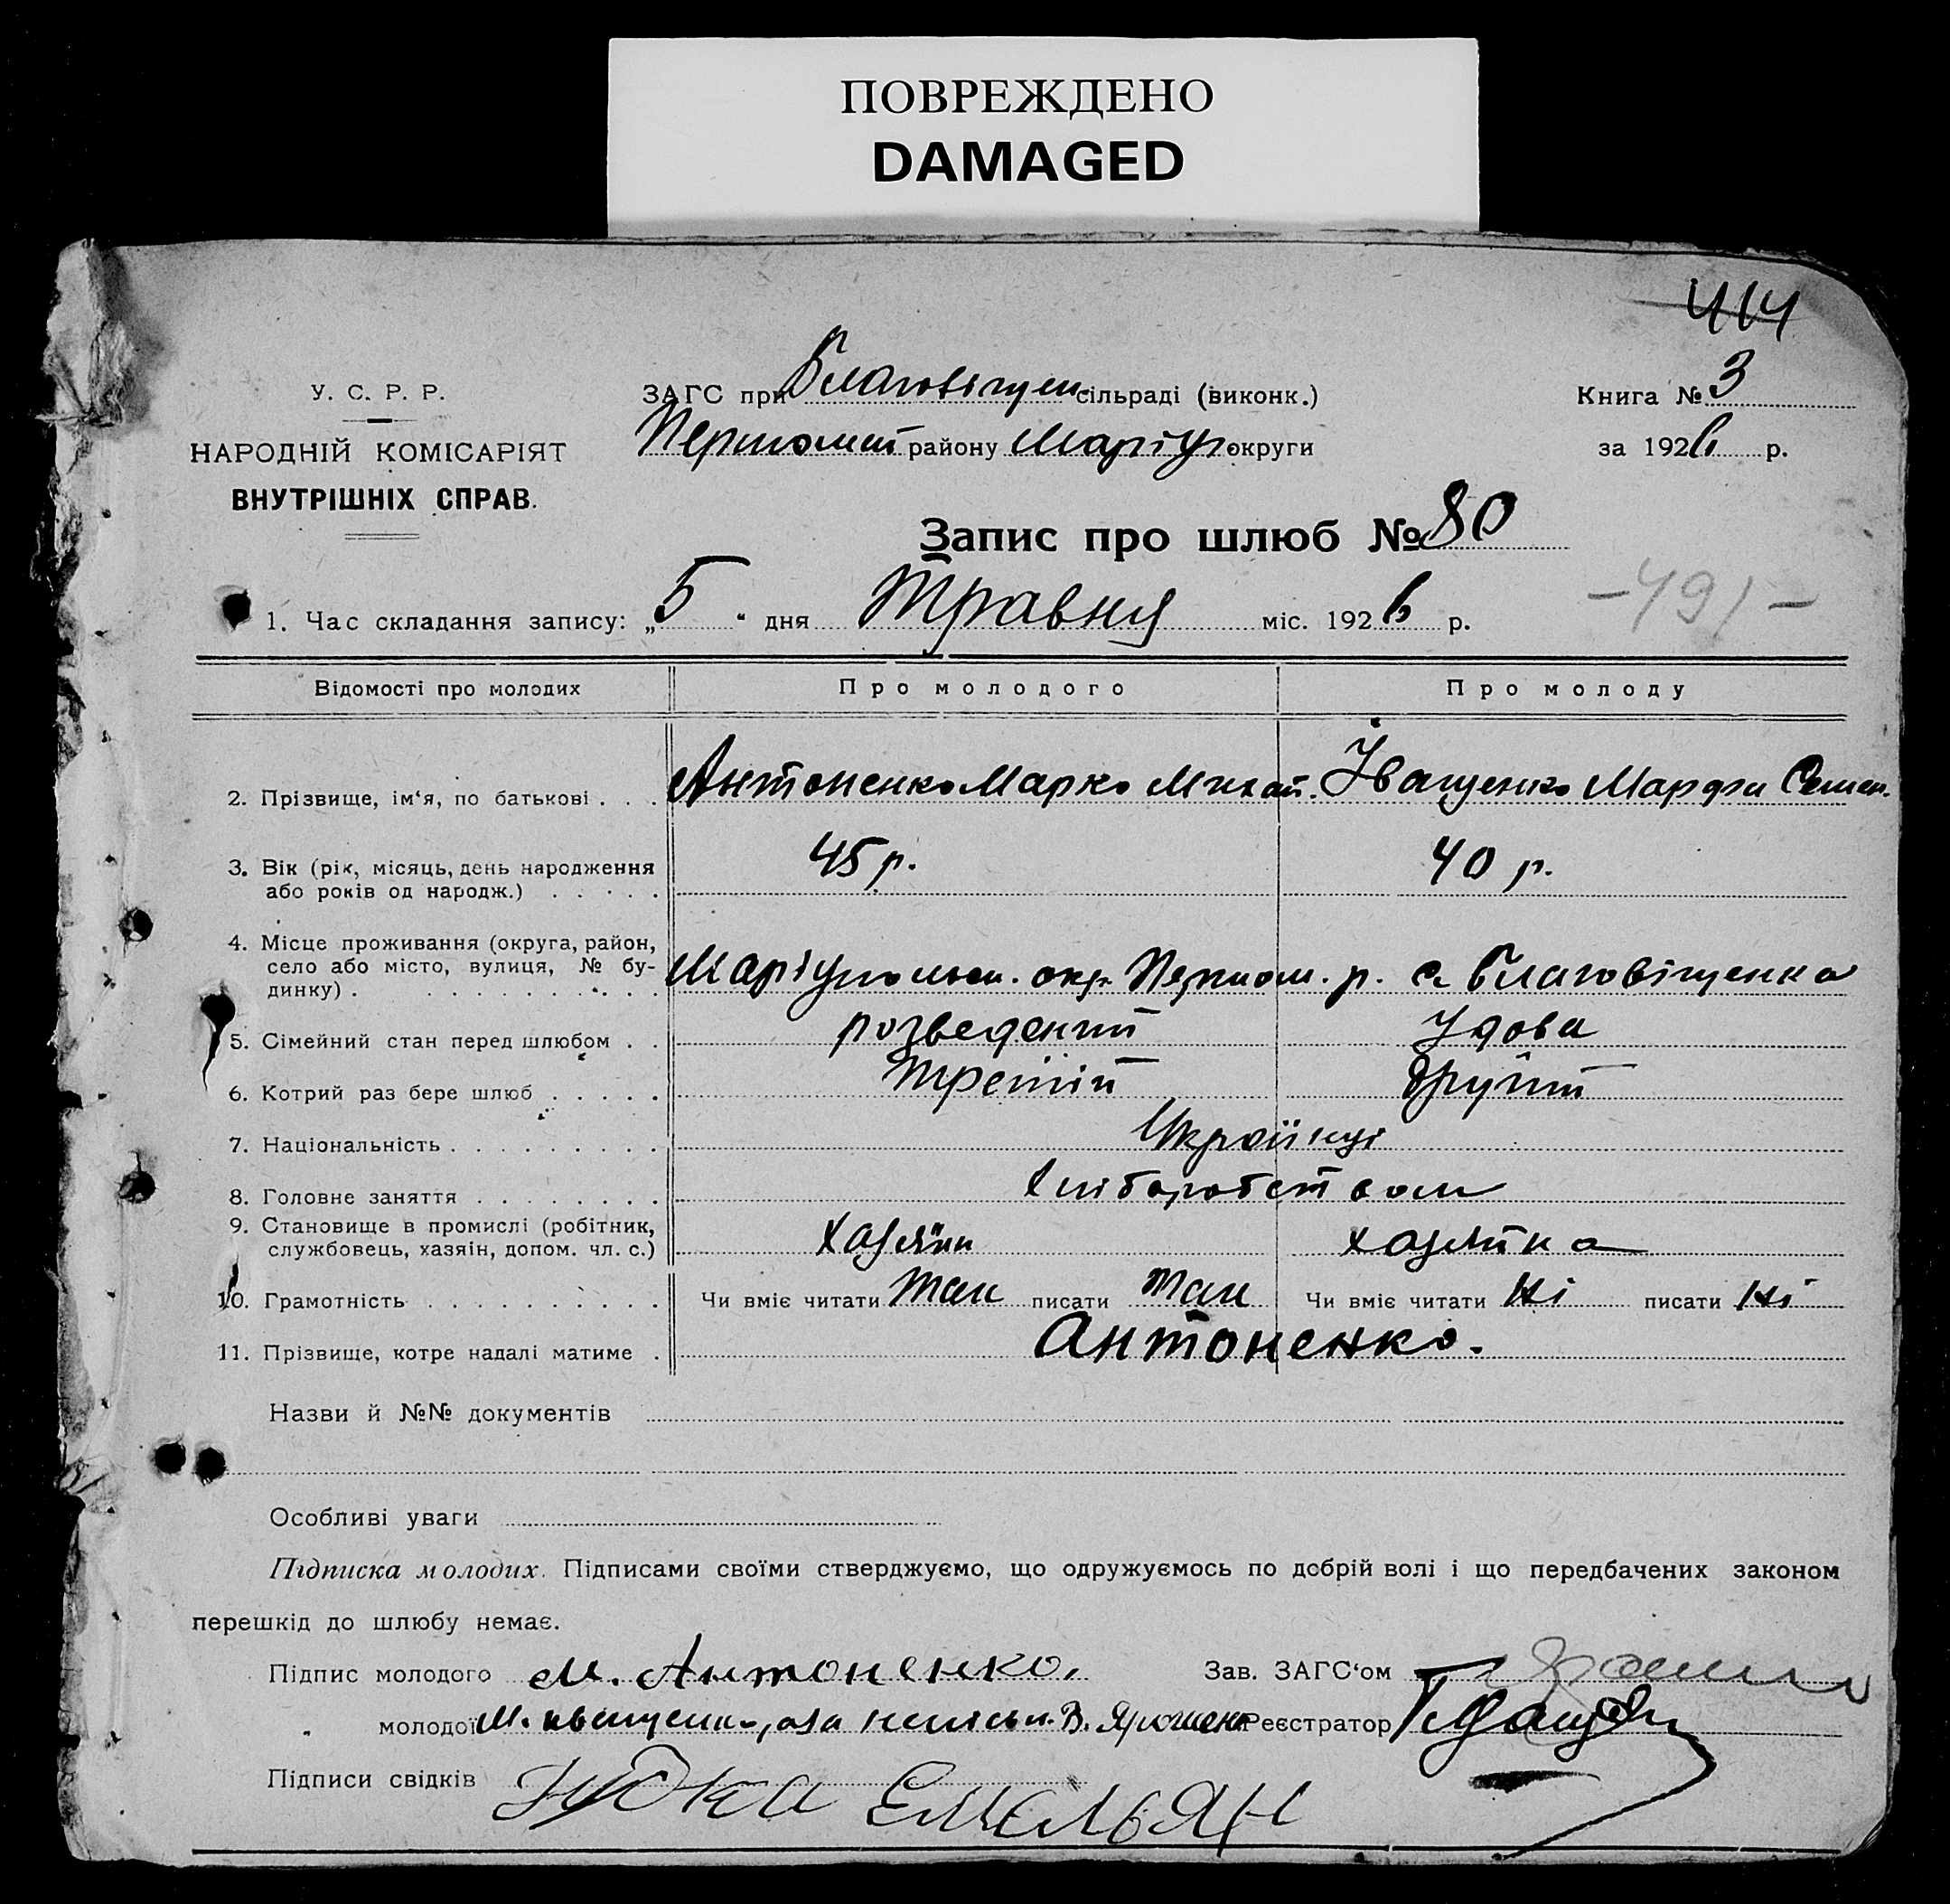 ПОВРЕЖДЕНО
DAMAGED
414
У. С. Р. Р. ЗАГС при Благовіщен. сільраді (виконк.) Книга № 3
НАРОДНІЙ КОМІСАРІЯТ Першомай району Маріуп округи за 1926 р.
ВНУТРІШНІХ СПРАВ.
Запис про шлюб № 80
1. Час складання запису: „5“ дня Травня міс. 1926 р. -491-
Відомості про молодих Про молодого Про молоду
2. Прізвище, ім‘я, по батькові . . . Антоненко Марко Михай. Іващенко Марфи Семен.
3. Вік (рік, місяць, день народження 45 р. 40 р.
або років од народж.) . . . . .
4. Місце проживання (округа, район,
село або місто, вулиця, № бу- Маріупольськ. окр. Першом. р. с. Благовіщенка
динку) . . . . . . . . . . .
5. Сімейний стан перед шлюбом . . розведений Удова
6. Котрий раз бере шлюб . . . . . третій другий
7. Національність . . . . . . . . . Українці
8. Головне заняття . . . . . . . . Хліборобством
9. Становище в промислі (робітник, хазяїн хазяйка
службовець, хазяін, допом. чл. с.)
10. Грамотність . . . . . . . . . . . Чи вміє читати Так писати Так Чи вміє читати Ні писати Ні
11. Прізвище, котре надалі матиме . Антоненко.
Назви й №№ документів
Особливі уваги
Підписка молодих. Підписами своїми стверджуємо, що одружуємось по добрій волі і що передбачених законом
перешкід до шлюбу немає.
Підпис молодого М. Антоненко. Зав. ЗАГС‘ом
„ молодої М. Иващенко, а за неписьм. В. Ярошенк Реєстратор
Підписи свідків Емельян